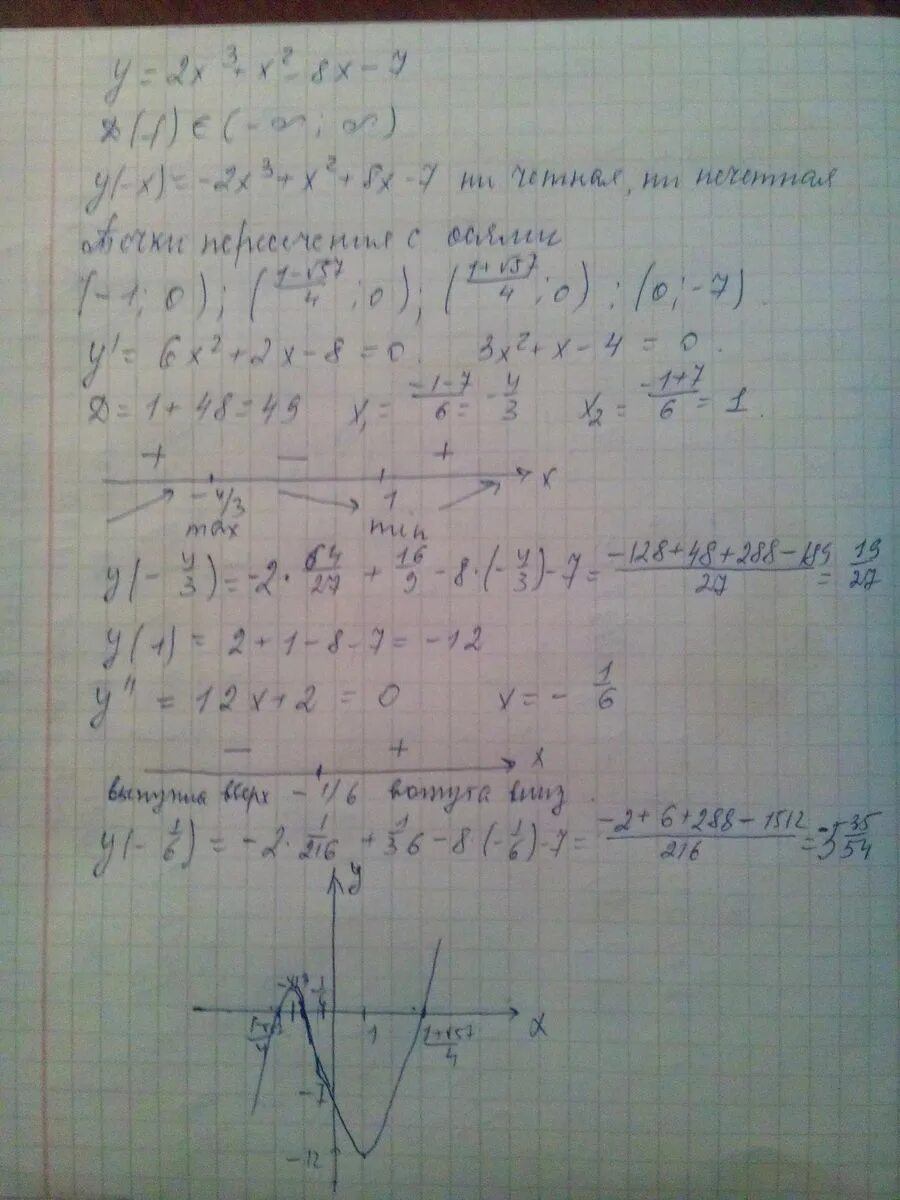 y = 2x³ + x² - 8x - 7
D(f) ∈ (-∞; ∞)
y(-x) = -2x³ + x² + 8x - 7 ни четная, ни нечетная
Точки пересечения с осями
(-1; 0); ((1-√57)/4; 0); ((1+√57)/4; 0); (0; -7).
y' = 6x² + 2x - 8 = 0. 3x² + x - 4 = 0.
D = 1 + 48 = 49 x₁ = (-1-7)/6 = -4/3 x₂ = (-1+7)/6 = 1.
+ — +
-4/3 1 x
max min
y(-4/3) = -2·64/27 + 16/9 - 8·(-4/3) - 7 = (-128+48+288-189)/27 = 19/27
y(1) = 2 + 1 - 8 - 7 = -12
y'' = 12x + 2 = 0 x = -1/6
— + x
выпукла вверх -1/6 вогнута вниз.
y(-1/6) = -2·1/216 + 1/36 - 8(-1/6) - 7 = (-2+6+288-1512)/216 = -5 35/54
y
-1/6
1 (1+√57)/4 x
-7
-12